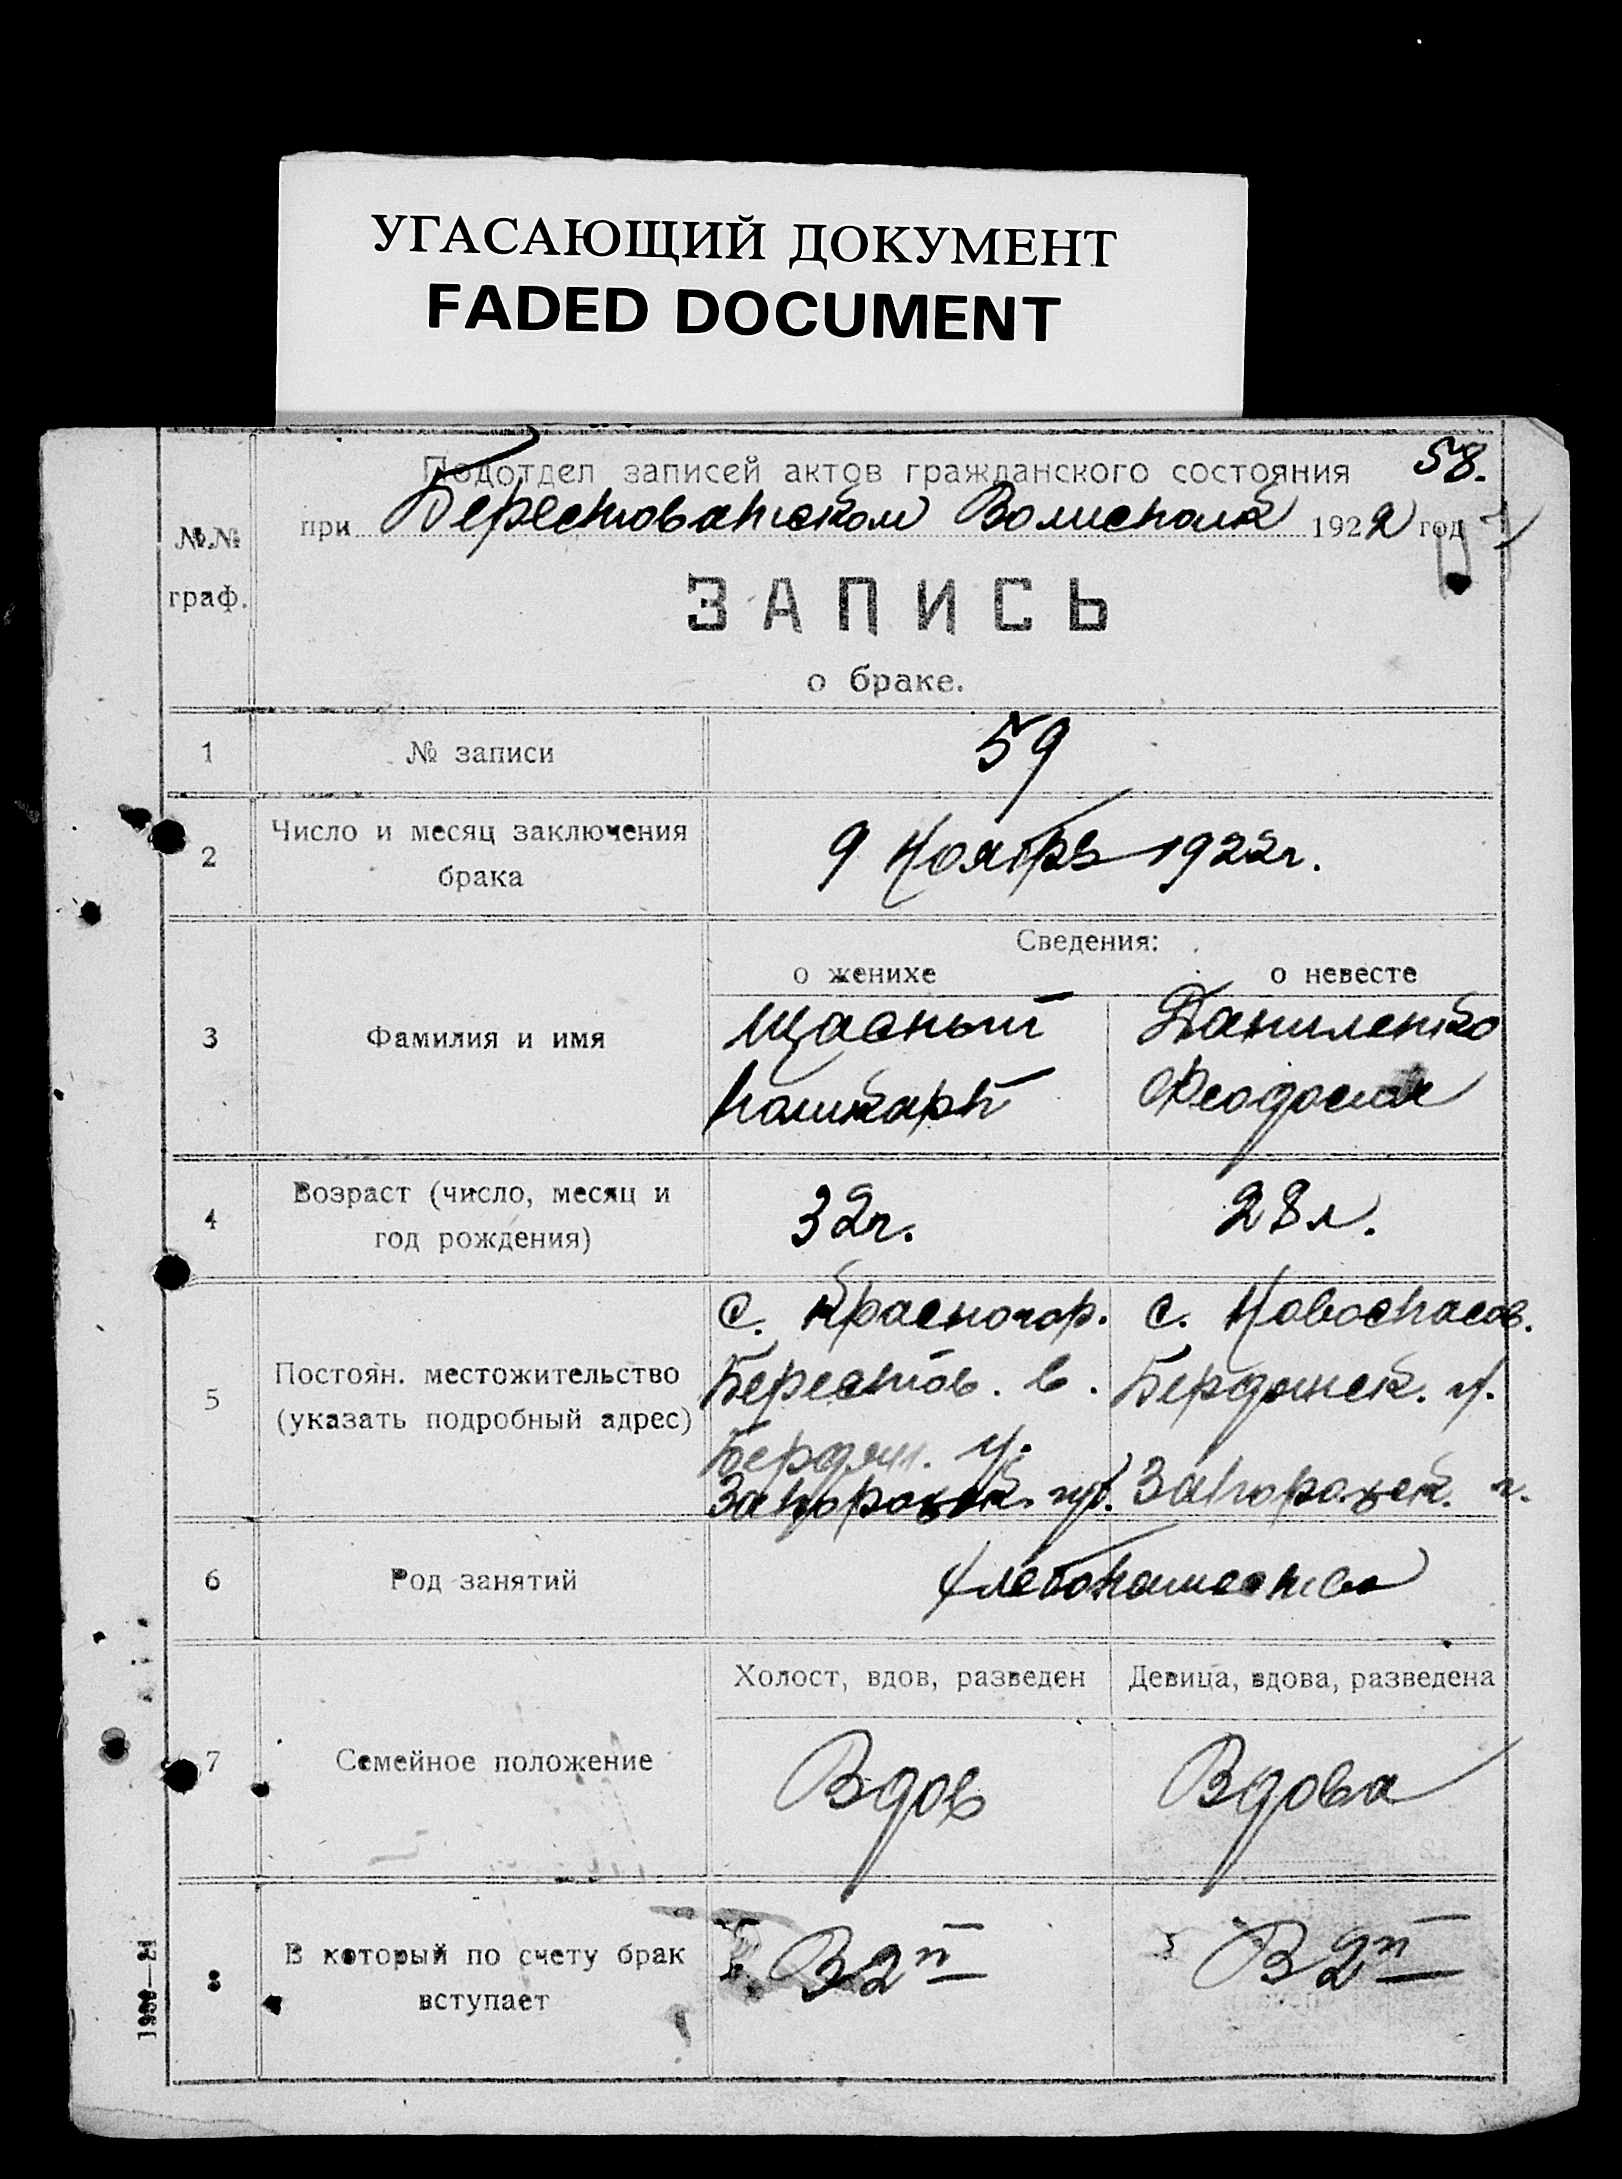 УГАСАЮЩИЙ ДОКУМЕНТ
FADED DOCUMENT
58.
Подотдел записей актов гражданского состояния
при Берестованском Волисполк 1922 год
№№
граф.
ЗАПИСЬ
о браке.
1 № записи 59
2 Число и месяц заключения
брака
9 Ноября 1922г.
Сведения:
о женихе о невесте
3 Фамилия и имя
Щасный Даниленко
Поликарп Феодосия
4 Возраст (число, месяц и
год рождения)
32г. 28л.
5 Постоян. местожительство
(указать подробный адрес)
с. Красногор. с. Новоспасов.
Берестов. в. Бердянск. у.
Бердян. у.
Запорожск. губ. Запорожск. г.
6 Род занятий Хлебопашество
Холост, вдов, разведен Девица, вдова, разведена
7 Семейное положение Вдов Вдова
8 В который по счету брак
вступает
В 2й В 2й